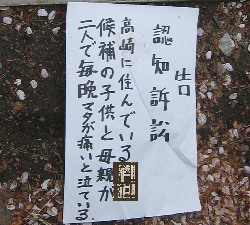 告
認知訴訟
高崎に住んでいる
候補の子供と母親が
二人で毎晩マタが痛いと泣ている